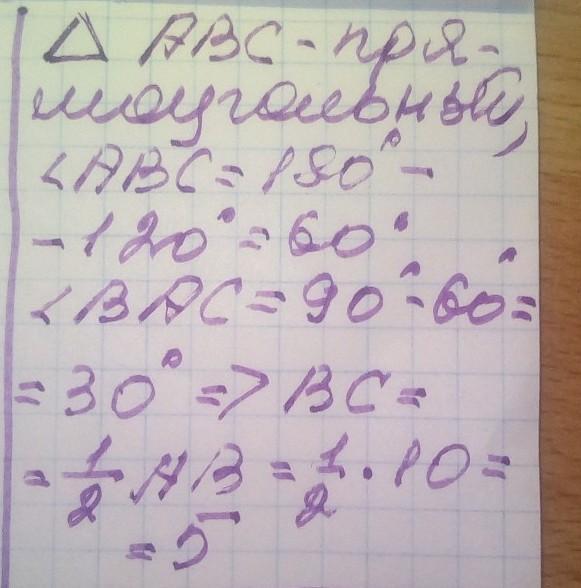 △ ABC - пря-
моугольный,
∠ABC = 180° -
- 120° = 60°
∠BAC = 90° - 60° =
= 30° => BC =
= 1/2 AB = 1/2 · 10 =
= 5